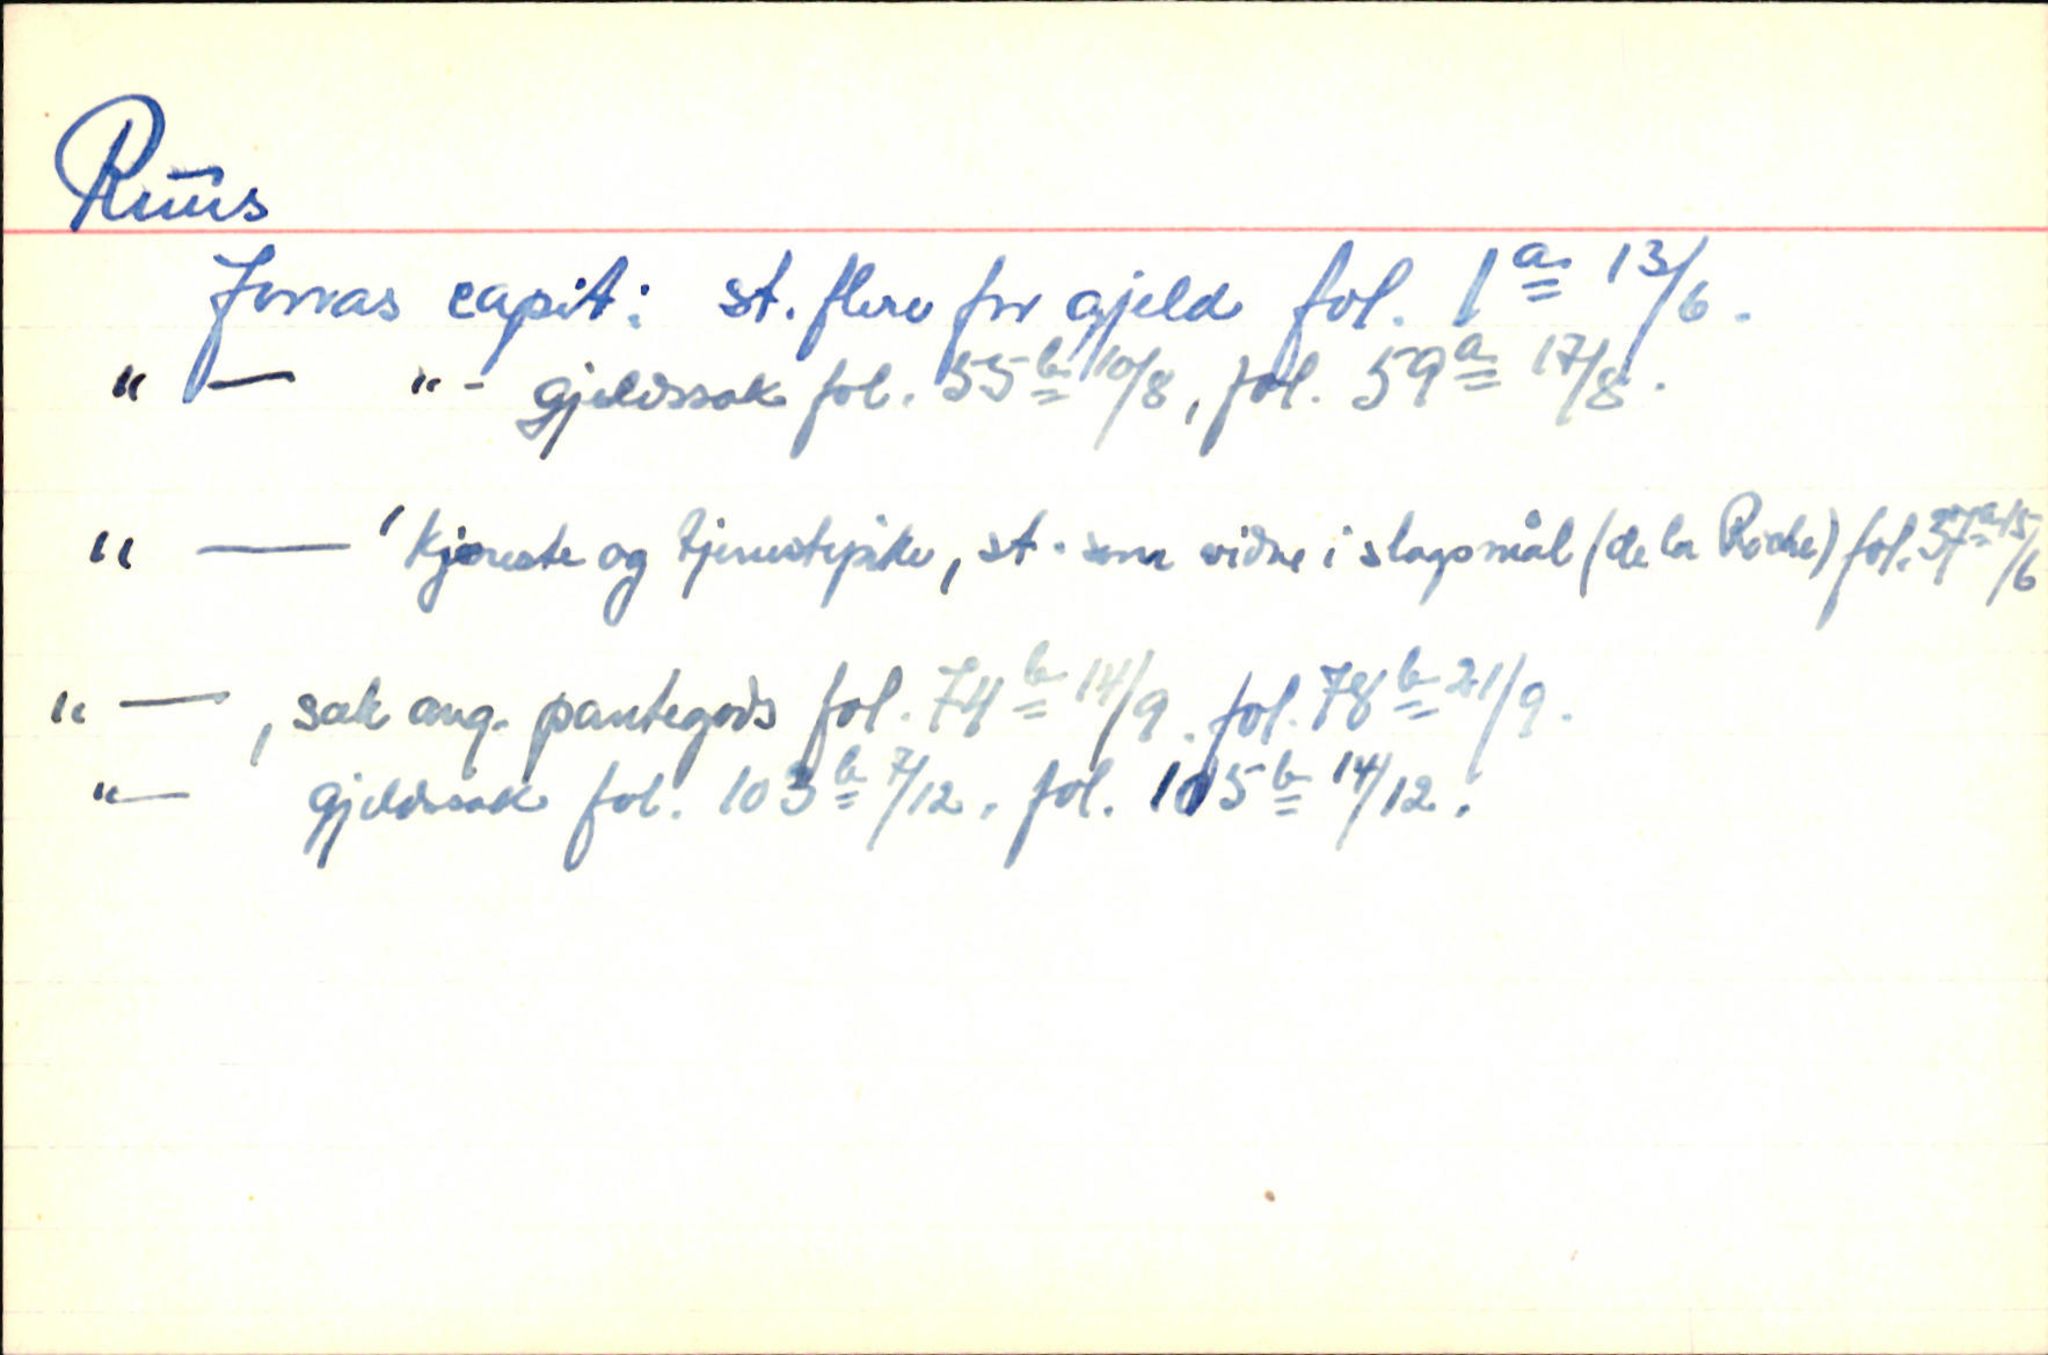 Ruus
Jonas capit: st. flere for gjeld fol. 1a 13/6.
" — " - gjeldssak fol. 55b 10/8, fol. 59a 17/8.
" — ' kjæreste og tjenestepike, st. som vidne i slagsmål (de la Roche) fol. 37a 15/6
" — , sak ang. pantegods fol. 74b 14/9. fol. 78b 21/9.
" — gjeldssak fol. 103b 7/12. fol. 105b 14/12.